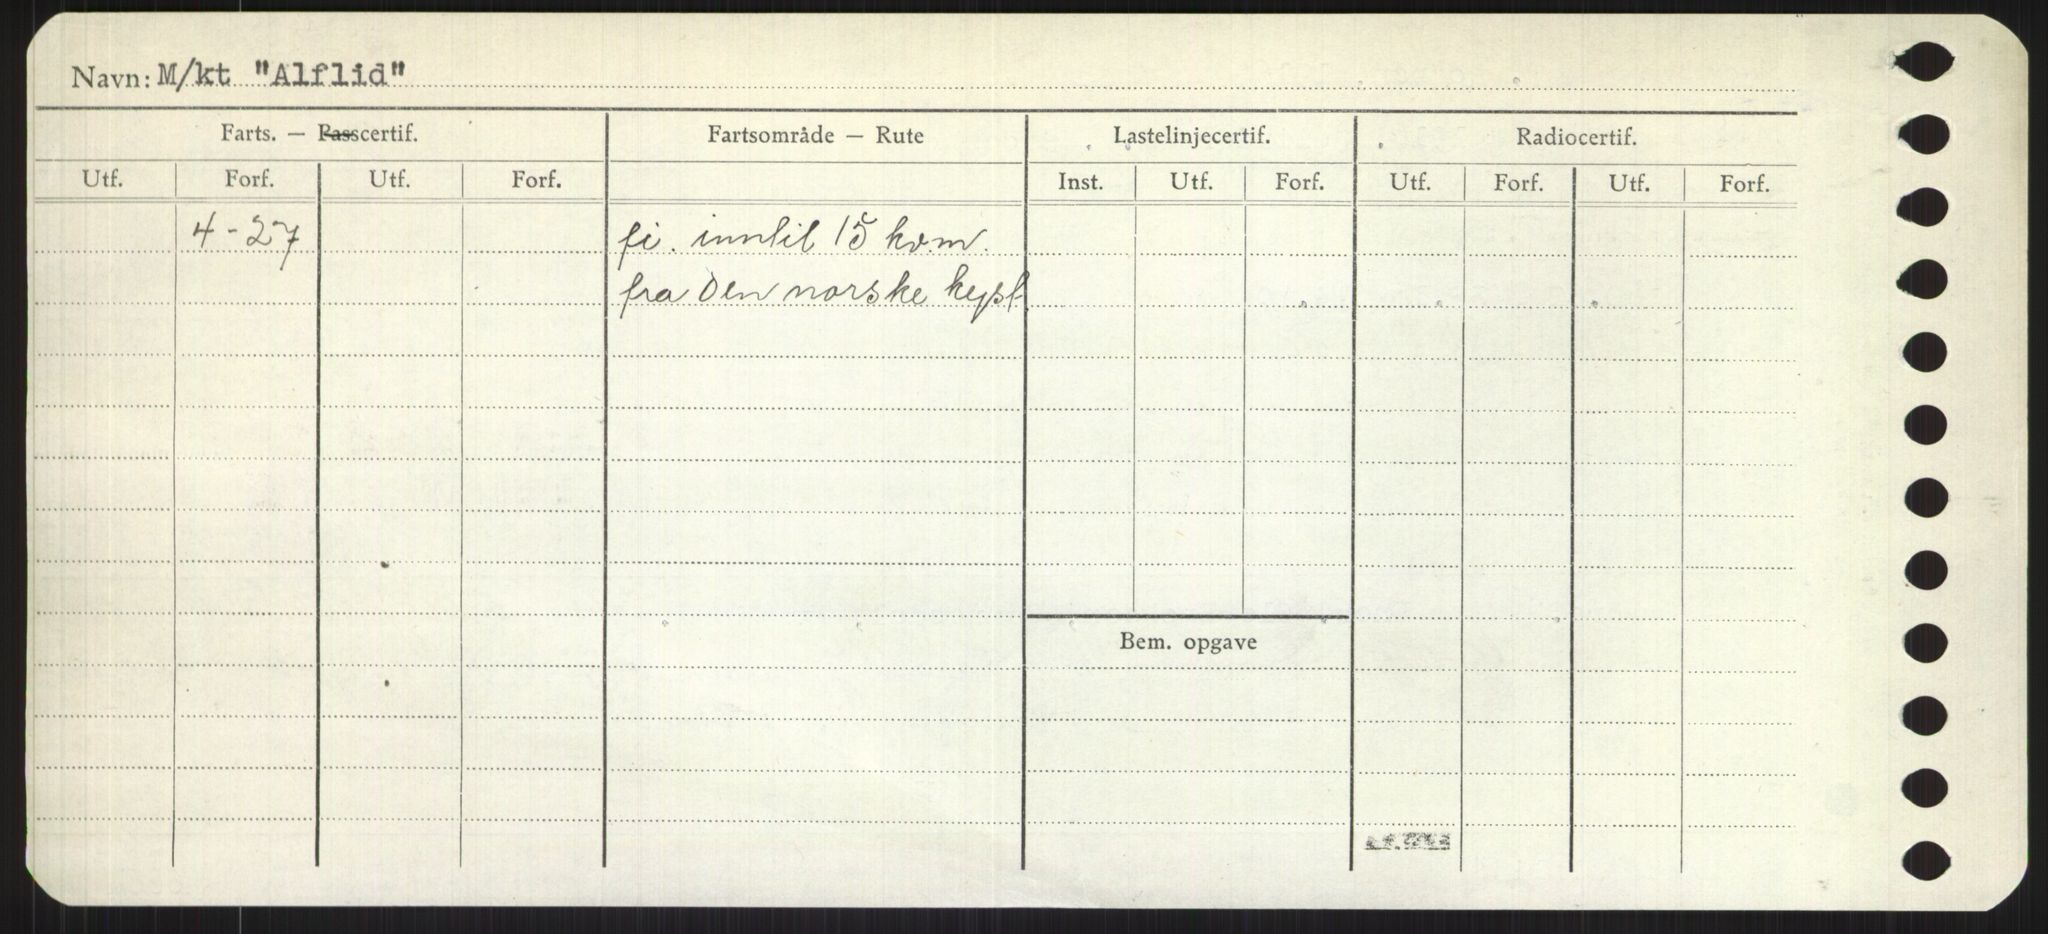 Navn: M/kt "Alflid"
Farts. — Passcertif. Fartsområde — Rute Lastelinjecertif. Radiocertif.
Utf. Forf. Utf. Forf. Inst. Utf. Forf. Utf. Forf. Utf. Forf.
4-27 fi. inntil 15 kv.m.
fra den norske kyst
Bem. opgave